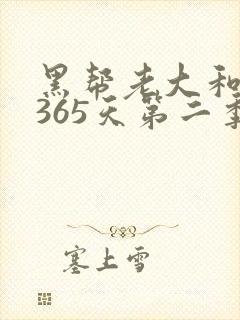 黑帮老大和
365天第二季
塞上雪